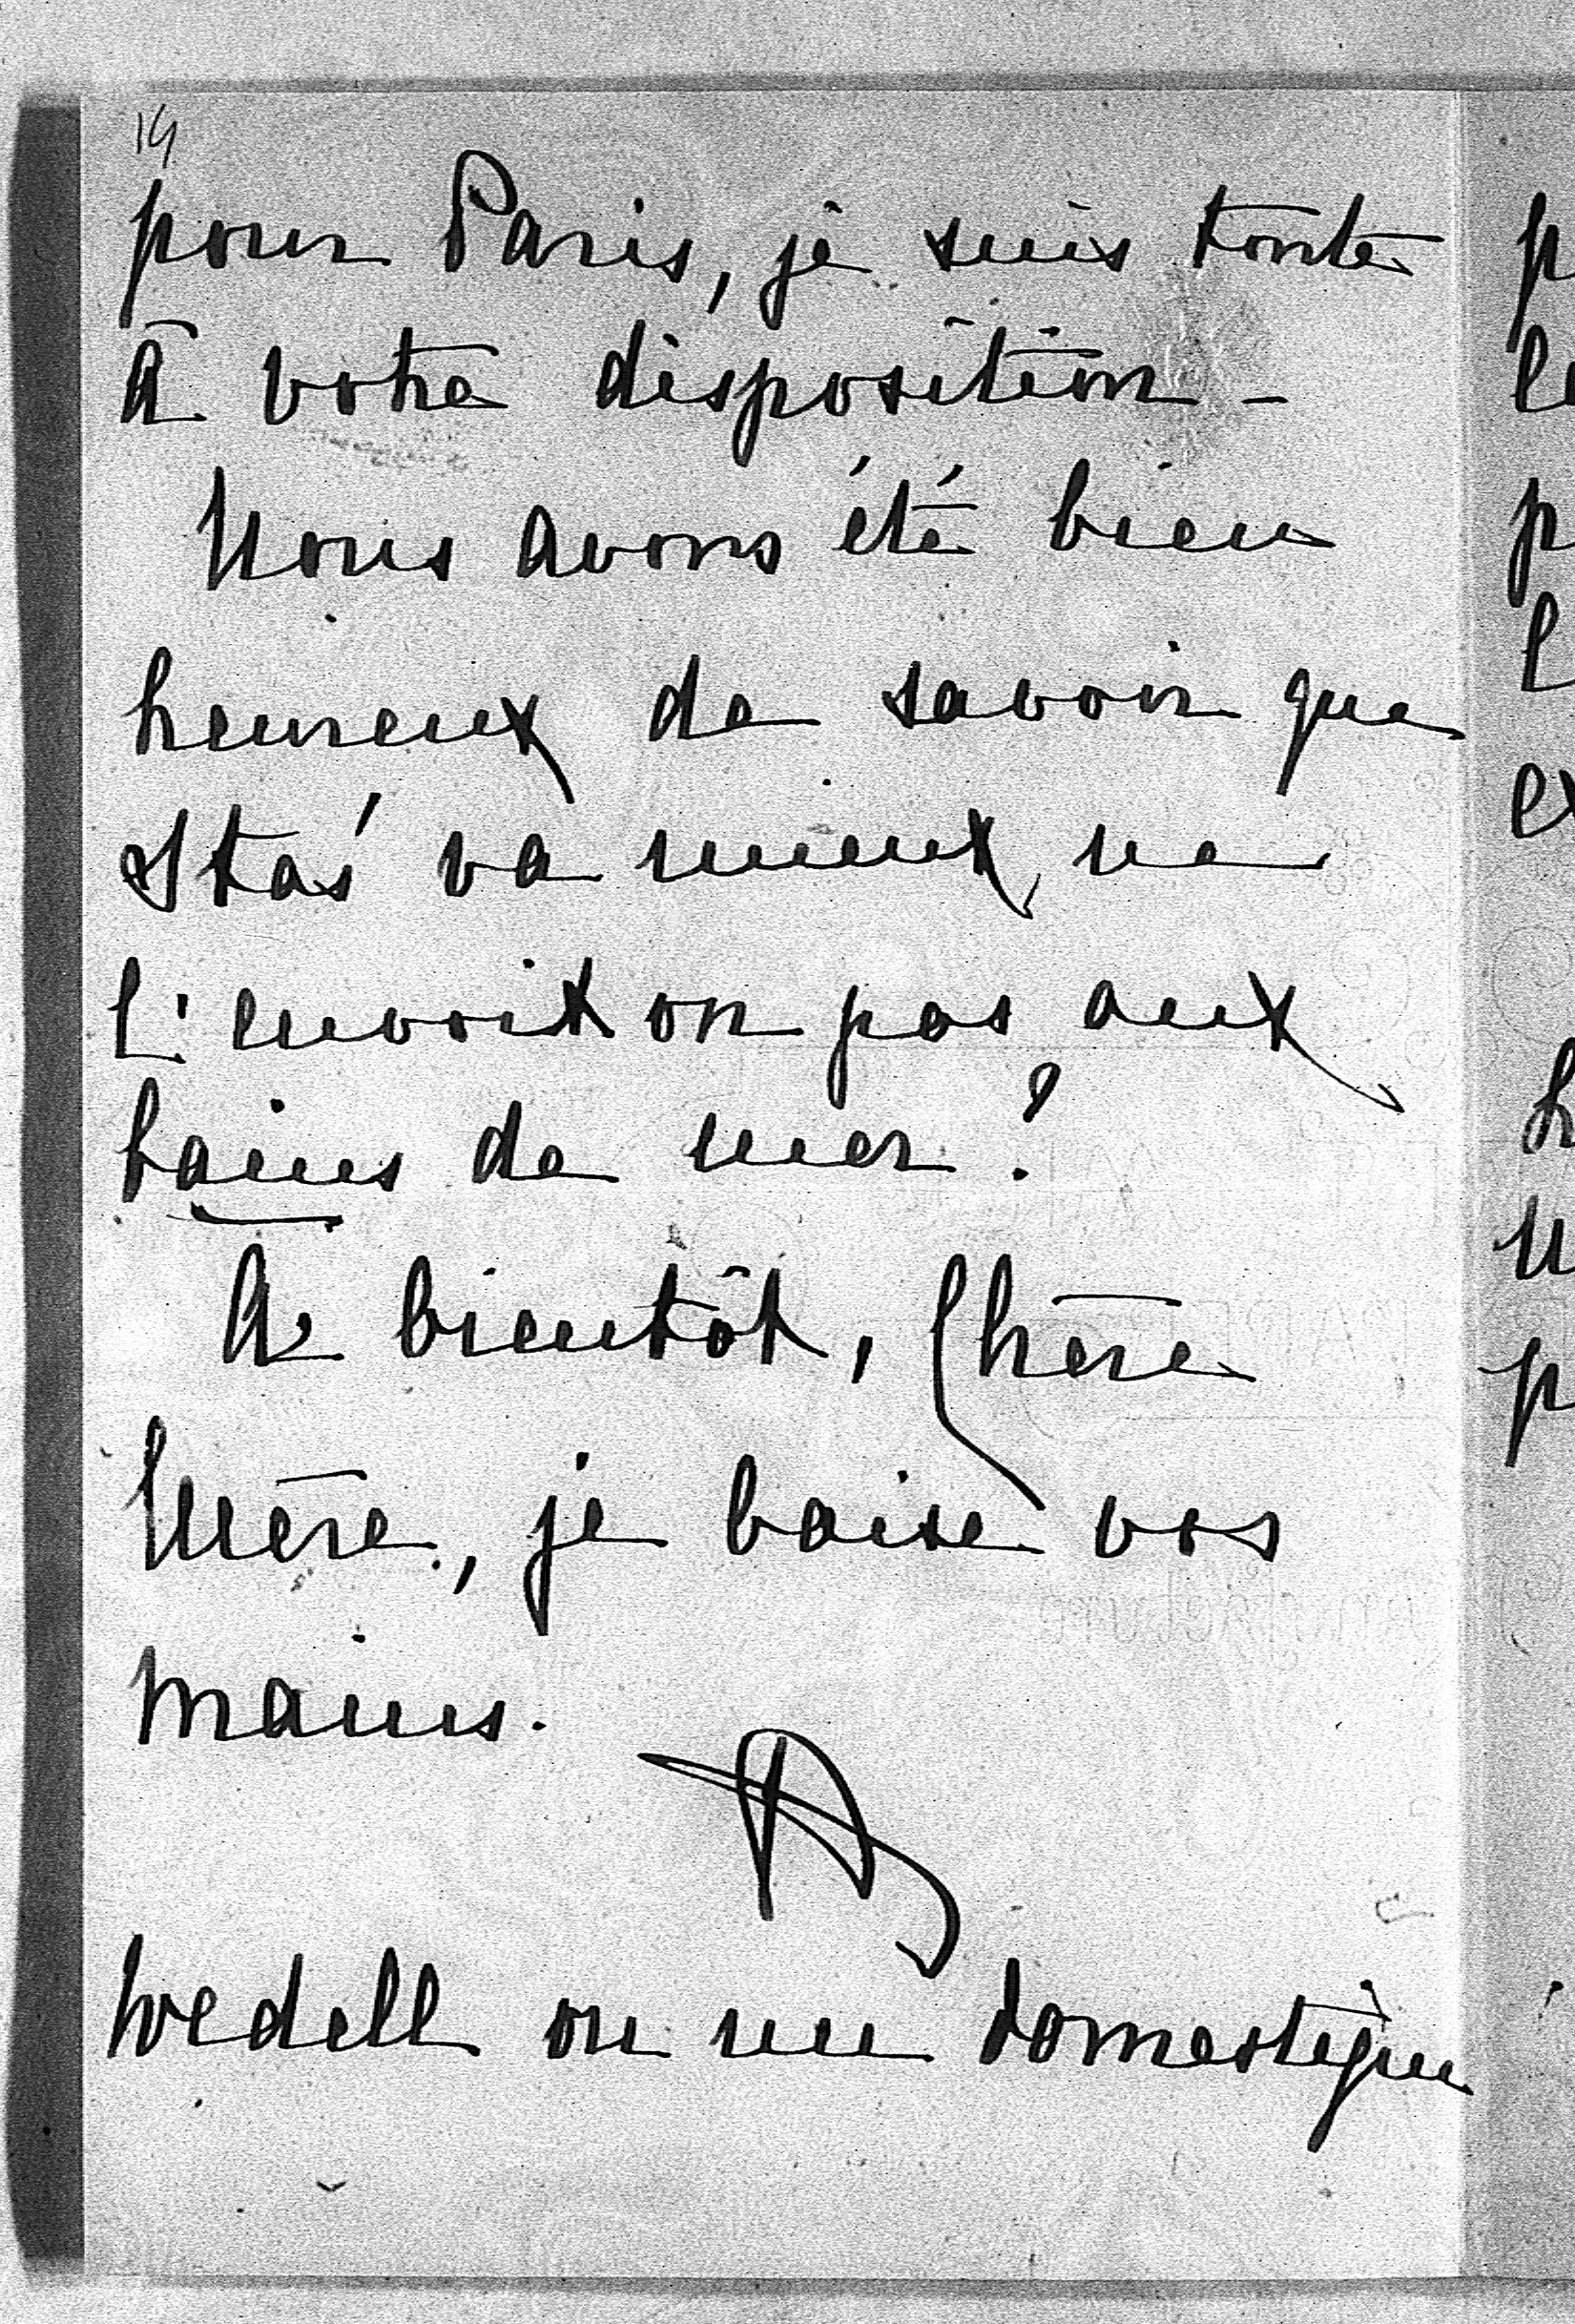 14
pour Paris, je suis toute
à votre disposition -
Nous avons été bien
heureux de savoir que
Staś va mieux ne
l'envoit on pas aux
bains de mer?
A bientôt, Chère
Mère, je baise vos
mains.
Wedell ou un domestique